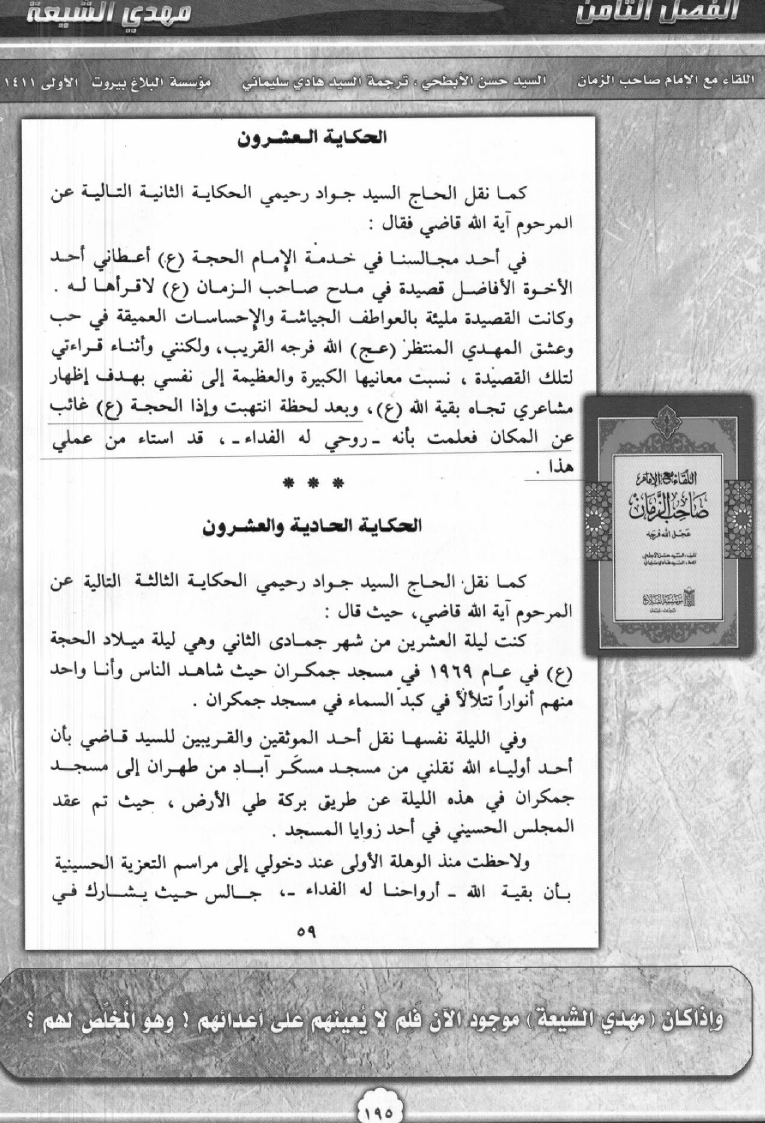 الفصل الثامن
مهدي الشيعة
اللقاء مع الامام صاحب الزمان السيد حسن الأبطحي ، ترجمة السيد هادي سليماني مؤسسة البلاغ بيروت الاولى ١٤١١
الحكاية العشرون
كما نقل الحاج السيد جواد رحيمي الحكاية الثانية التالية عن
المرحوم آية الله قاضي فقال :
في أحد مجالسنا في خدمة الإمام الحجة (ع) أعطاني أحد
الأخوة الأفاضل قصيدة في مدح صاحب الزمان (ع) لاقرأها له .
وكانت القصيدة مليئة بالعواطف الجياشة والإحساسات العميقة في حب
وعشق المهدي المنتظر (عج) الله فرجه القريب، ولكنني وأثناء قراءتي
لتلك القصيدة ، نسبت معانيها الكبيرة والعظيمة إلى نفسي بهدف إظهار
مشاعري تجاه بقية الله (ع)، وبعد لحظة انتهبت وإذا الحجة (ع) غائب
عن المكان فعلمت بأنه ـ روحي له الفداء ـ، قد استاء من عملي
هذا .
* * *
الحكاية الحادية والعشرون
كما نقل الحاج السيد جواد رحيمي الحكاية الثالثة التالية عن
المرحوم آية الله قاضي، حيث قال :
كنت ليلة العشرين من شهر جمادى الثاني وهي ليلة ميلاد الحجة
(ع) في عام ١٩٦٩ في مسجد جمكران حيث شاهد الناس وأنا واحد
منهم أنواراً تتلألأ في كبد السماء في مسجد جمكران .
وفي الليلة نفسها نقل أحد الموثقين والقريبين للسيد قاضي بأن
أحد أولياء الله نقلني من مسجد مسكّر آباد من طهران إلى مسجد
جمكران في هذه الليلة عن طريق بركة طي الأرض ، حيث تم عقد
المجلس الحسيني في أحد زوايا المسجد .
ولاحظت منذ الوهلة الأولى عند دخولي إلى مراسم التعزية الحسينية
بأن بقية الله ـ أرواحنا له الفداء ـ، جالس حيث يشارك في
٥٩
اللقاء مع الإمام
صاحب الزمان
عجل الله فرجه
وإذا كان ( مهدي الشيعة ) موجود الآن فلم لا يُعينهم على أعدائهم ! وهو المُخلّص لهم ؟
١٩٥